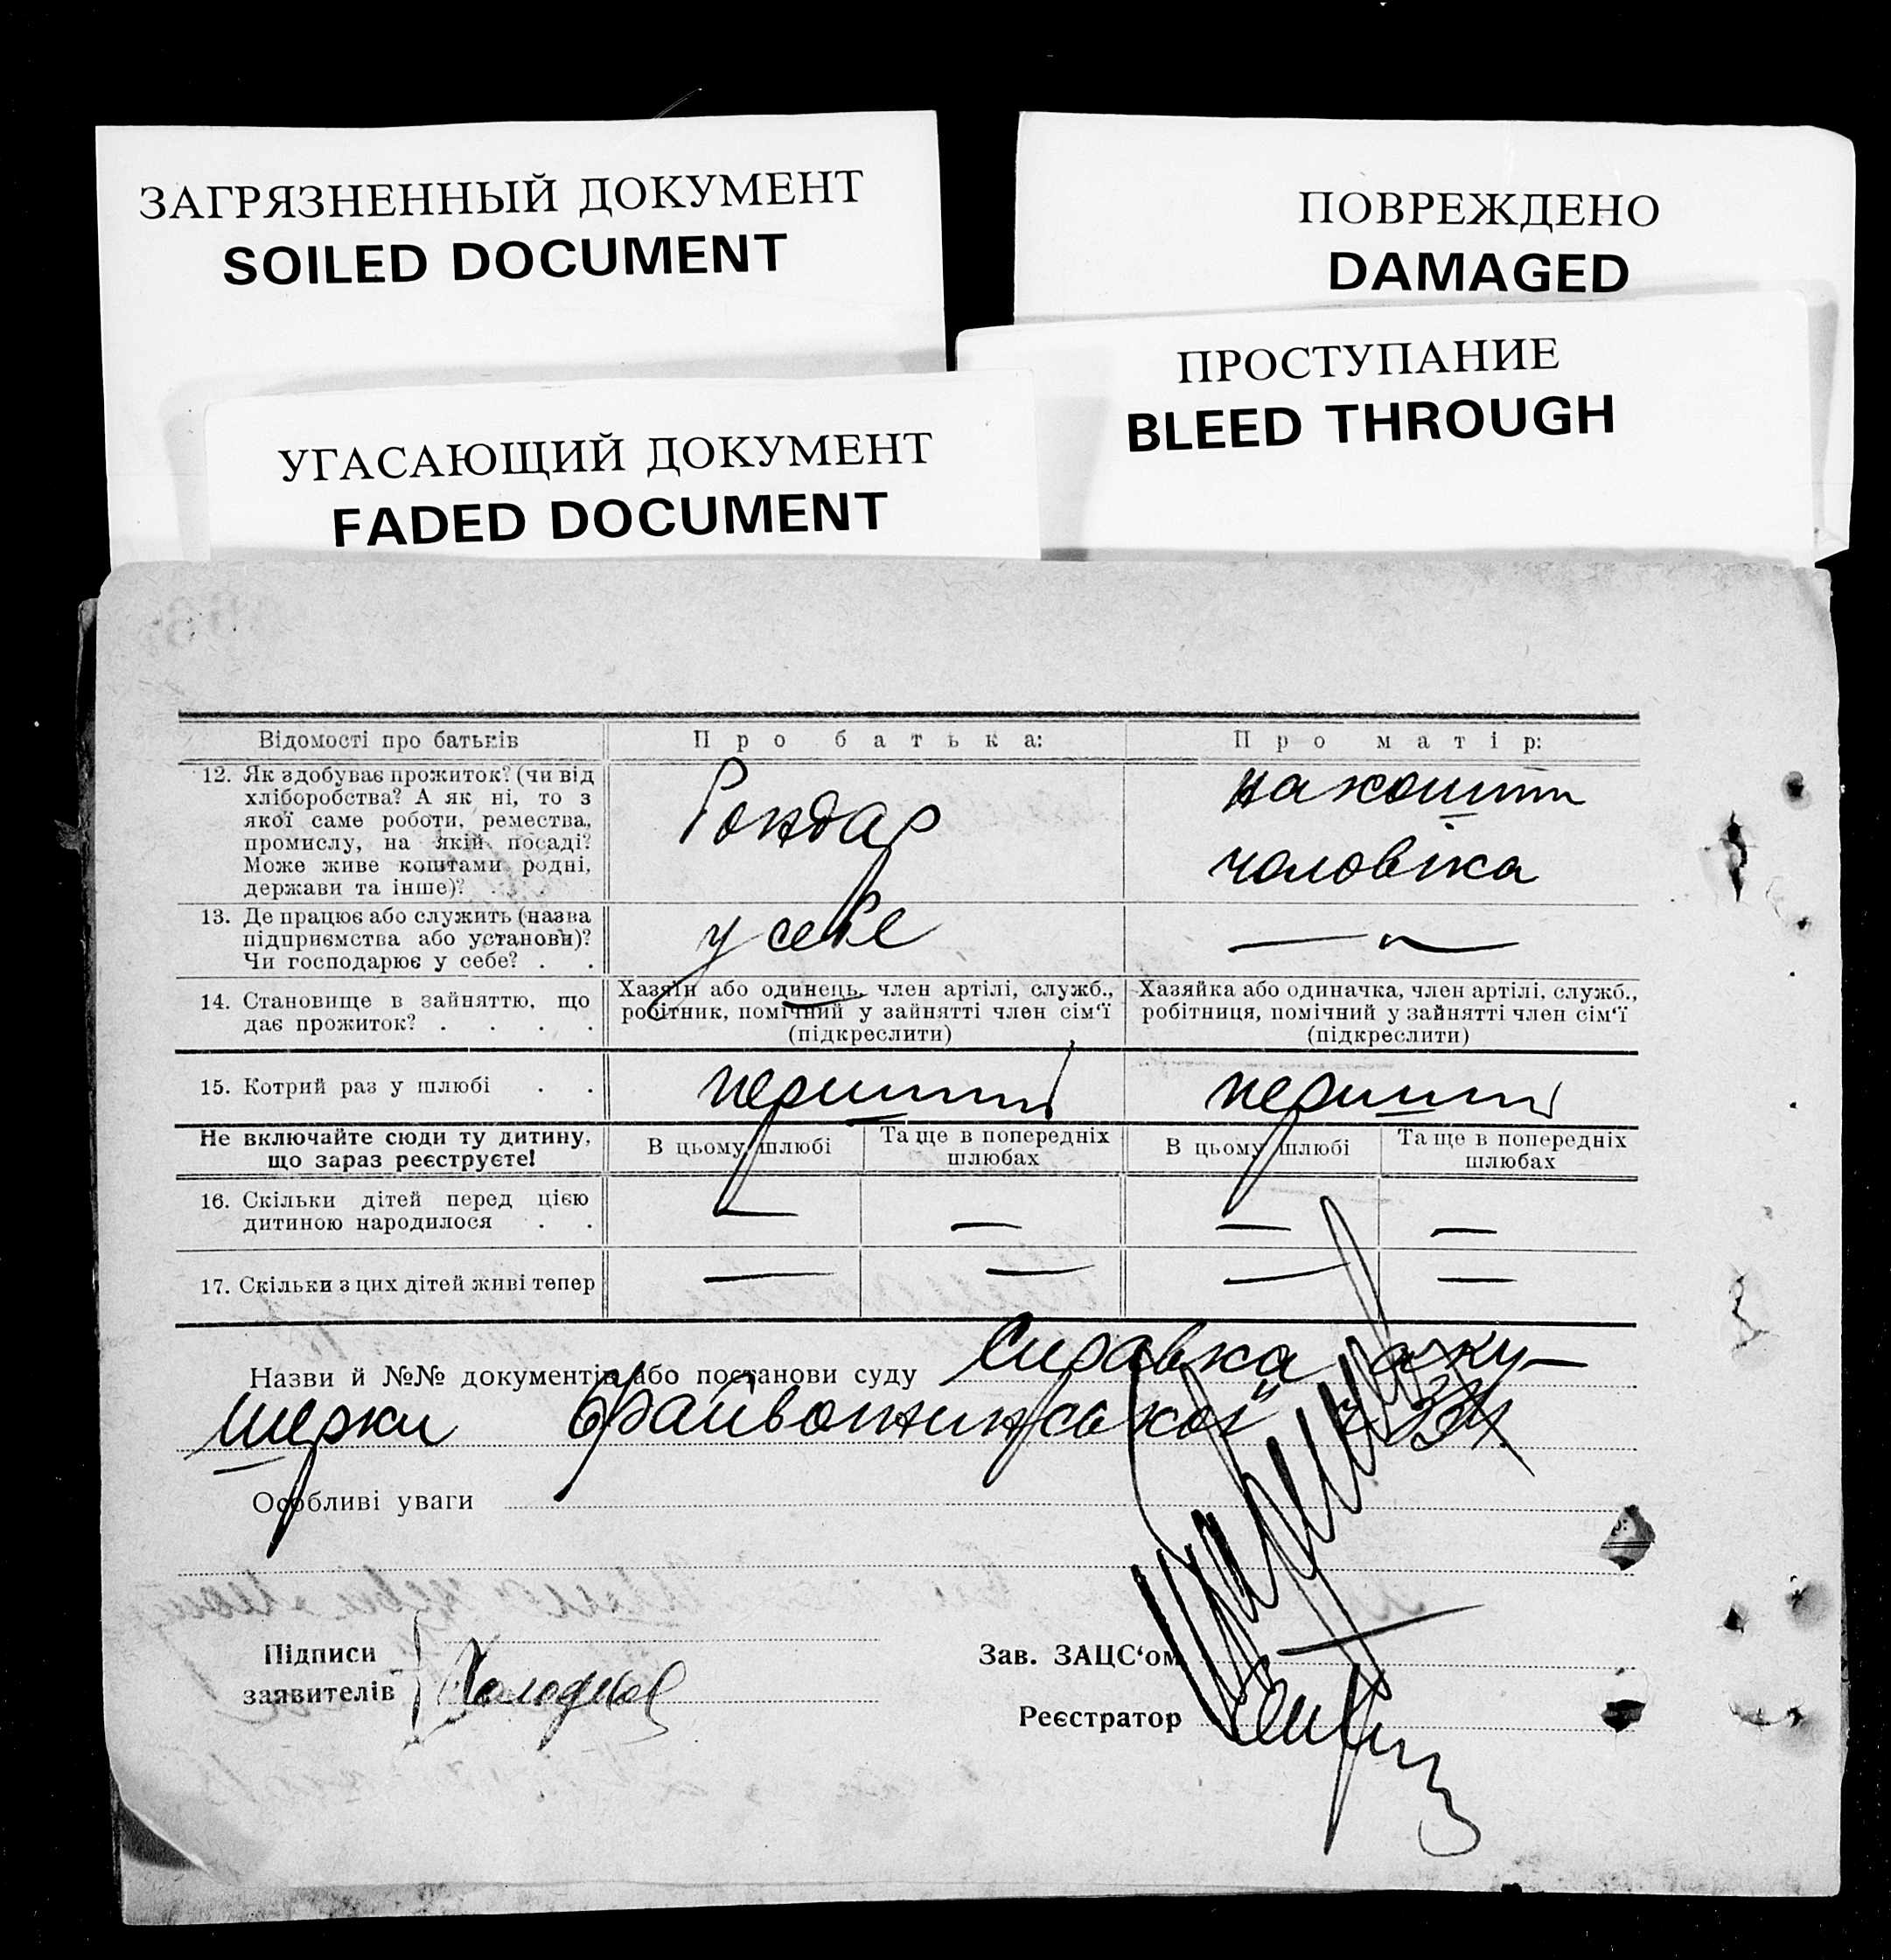 ЗАГРЯЗНЕННЫЙ ДОКУМЕНТ
SOILED DOCUMENT
ПОВРЕЖДЕНО
DAMAGED
ПРОСТУПАНИЕ
BLEED THROUGH
УГАСАЮЩИЙ ДОКУМЕНТ
FADED DOCUMENT
Відомості про батьків
Про батька:
Про матір:
12. Як здобуває прожиток? (чи від
хліборобства? А як ні, то з
якої саме роботи, ремества,
промислу, на якій посаді?
Може живе коштами родні,
держави та інше)? . .
на кошти
чоловіка
13. Де працює або служить (назва
підприємства або установи)?
Чи господарює у себе? . .
у себе
— " —
14. Становище в зайняттю, що
дає прожиток? . . . .
Хазяїн або одинець, член артілі, служб.,
робітник, помічний у зайнятті член сім‘ї
(підкреслити)
Хазяйка або одиначка, член артілі, служб.,
робітниця, помічний у зайнятті член сім‘ї
(підкреслити)
15. Котрий раз у шлюбі . .
перший
перший
Не включайте сюди ту дитину,
що зараз реєструєте!
В цьому шлюбі
Та ще в попередніх
шлюбах
В цьому шлюбі
Та ще в попередніх
шлюбах
16. Скільки дітей перед цією
дитиною народилося . .
— — — —
17. Скільки з цих дітей живі тепер
— — — —
Назви й №№ документів або постанови суду Справка аку-
шерки
Особливі уваги
Підписи
заявителів
Зав. ЗАЦС‘ом
Реєстратор